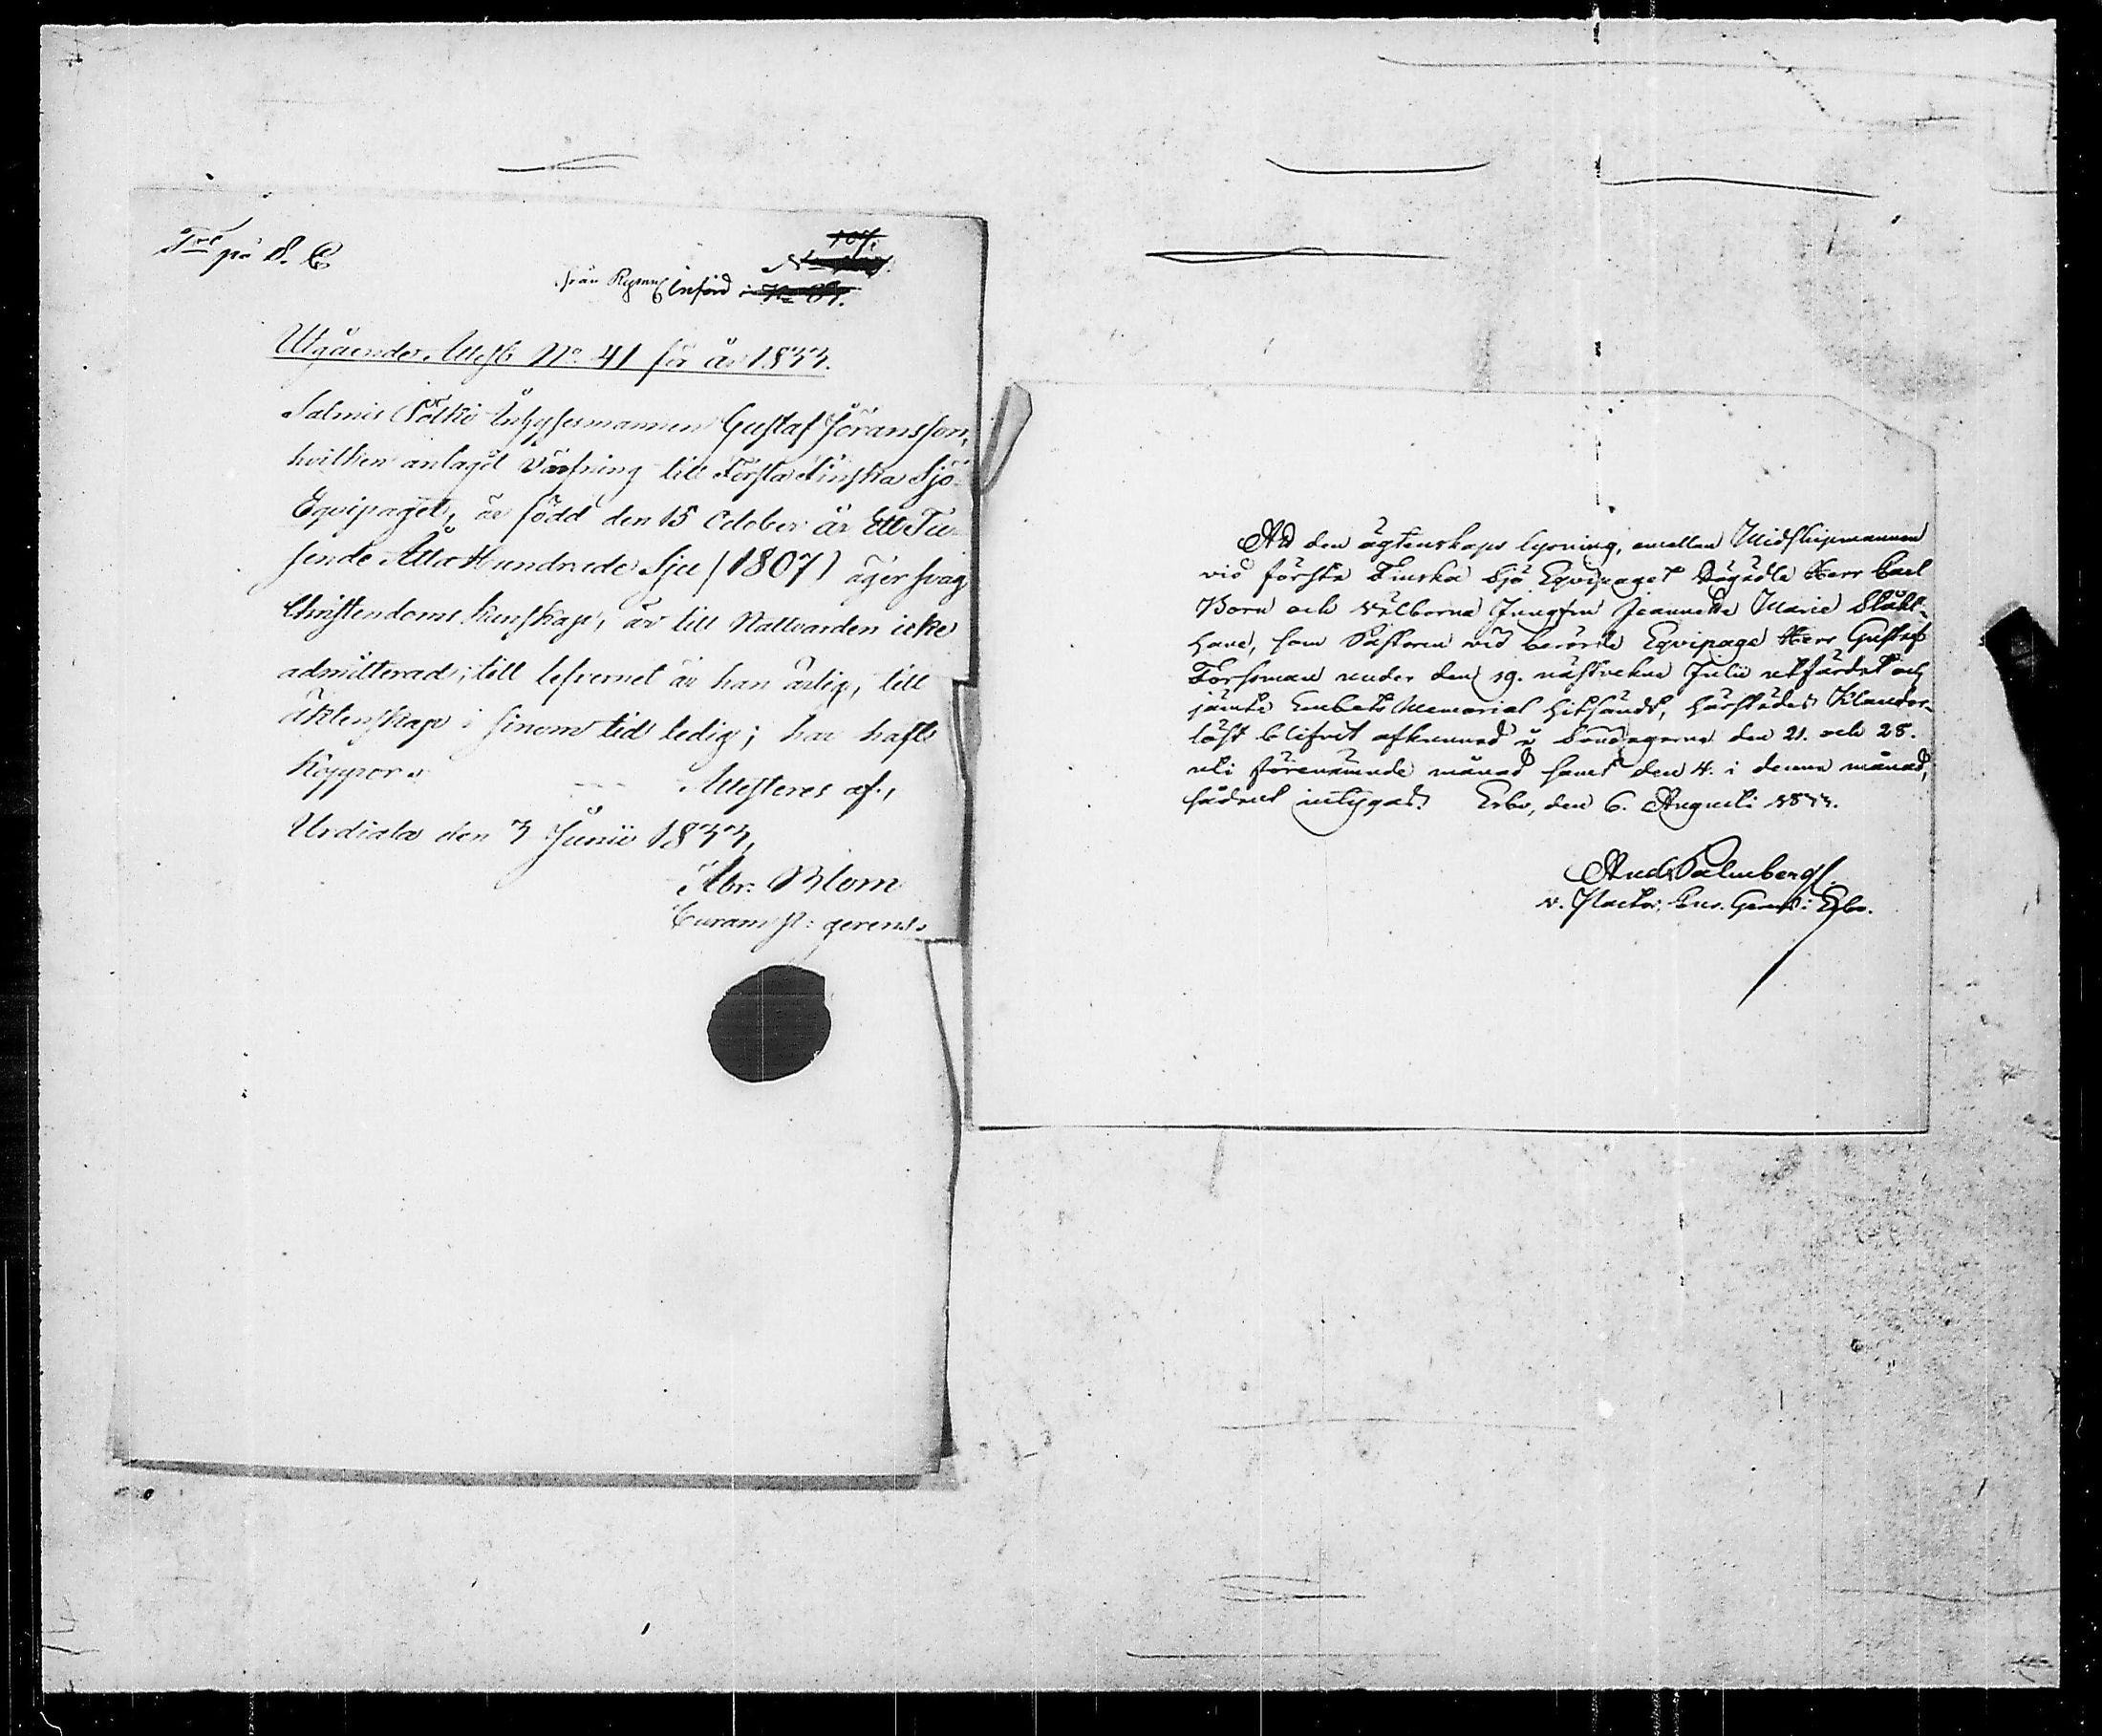 på S. E.
107.
från Regem införd i
Utgående Attest No. 41 för år 1833.
Salmis Pölkö Inhysesmannen Gustaf Jöransson,
hvilken antagit Värfning till Första Finska Sjö-
Eqvipaget, är född den 15 October år Ett Tu-
sende Åtta Hundrade Sju (1807) äger svag
Christendoms kunskap, är till Nattvarden icke
admitterad; till lefvernet är han ärlig, till
äktenskap i sinom tid ledig; har haft
koppor.
Attesteres af,
Urdiala den 3 Junii 1833,
Abr: Blom
Curam p: gerens.
At den ägtenskaps lysning, emellan Midshipmannen
vid första Finska Sjö Eqvipaget Ädle Herr Carl
Born och Välborna Jungfru Jeannette Marie Stålt-
hane, som Pastoren vid berörde Eqvipage Herr Gustaf
Forsman under den 19. nästvekne Julii utfärdat och
jämte Embets Memorial hitsändt, härstädes Klander-
löst blifvit afkunnad å Söndagarne den 21. och 28.
uti förenämnde månad samt den 4. i denna månad,
sådant intygas. Esbo, den 6. Augusti 1833.
And. Palmberg
v. Pastor, Cur. Gerens i Esbo.